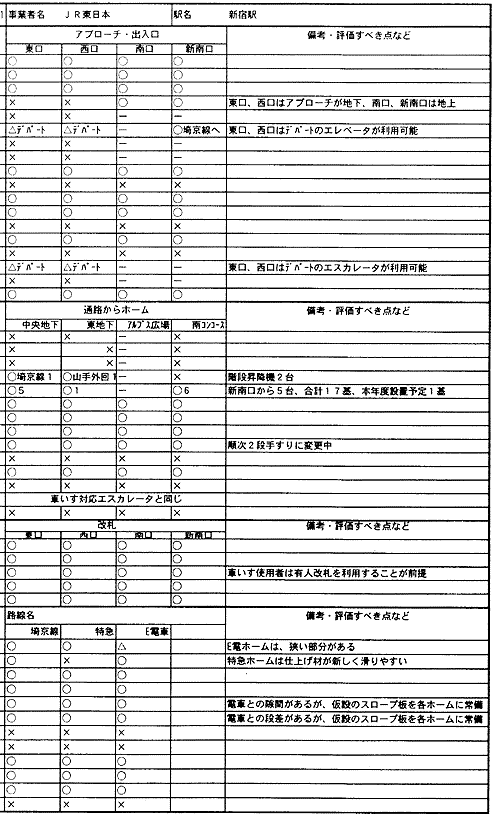 1 事業者名 ＪＲ東日本 駅名 新宿駅
アプローチ・出入口 備考・評価すべき点など
東口 西口 南口 新南口
○ ○ ○ ○
○ ○ ○ ○
○ ○ ○ ○
× × ○ ○ 東口、西口はアプローチが地下、南口、新南口は地上
× × － －
△ﾃﾞﾊﾟｰﾄ △ﾃﾞﾊﾟｰﾄ － ○埼京線へ 東口、西口はﾃﾞﾊﾟｰﾄのエレベータが利用可能
× × － －
× × － －
○ ○ ○ ○
× × × ×
○ ○ ○ ○
○ ○ ○ ○
× × × ×
○ ○ ○ ○
× × × ×
△ﾃﾞﾊﾟｰﾄ △ﾃﾞﾊﾟｰﾄ － － 東口、西口はﾃﾞﾊﾟｰﾄのエスカレータが利用可能
× × － －
○ ○ ○ ○
通路からホーム 備考・評価すべき点など
中央地下 東地下 ｱﾙﾌﾟｽ広場 南ｺﾝｺｰｽ
× × － ×
× × － ×
× × － ×
○埼京線１ ○山手外回１ － × 階段昇降機２台
○５ ○１ － ○６ 新南口から５台、合計１７基、本年度設置予定１基
○ ○ ○ ○
○ ○ ○ ○
○ ○ ○ ○
○ ○ ○ ○ 順次２段手すりに変更中
× × × ×
○ ○ ○ ○
× × × ×
車いす対応エスカレータと同じ
× × × ×
改札 備考・評価すべき点など
東口 西口 南口 新南口
○ ○ ○ ○
○ ○ ○ ○
○ ○ ○ ○ 車いす使用者は有人改札を利用することが前提
○ ○ ○ ○
○ ○ ○ ○
路線名 備考・評価すべき点など
埼京線 特急 E電車
○ ○ △ E電ホームは、狭い部分がある
○ × ○ 特急ホームは仕上げ材が新しく滑りやすい
○ ○ ○
○ ○ ○
○ ○ ○ 電車との隙間があるが、仮設のスロープ板を各ホームに常備
○ ○ ○ 電車との段差があるが、仮設のスロープ板を各ホームに常備
× × ×
× × ×
○ ○ ○
○ ○ ○
○ ○ ○
× × ×